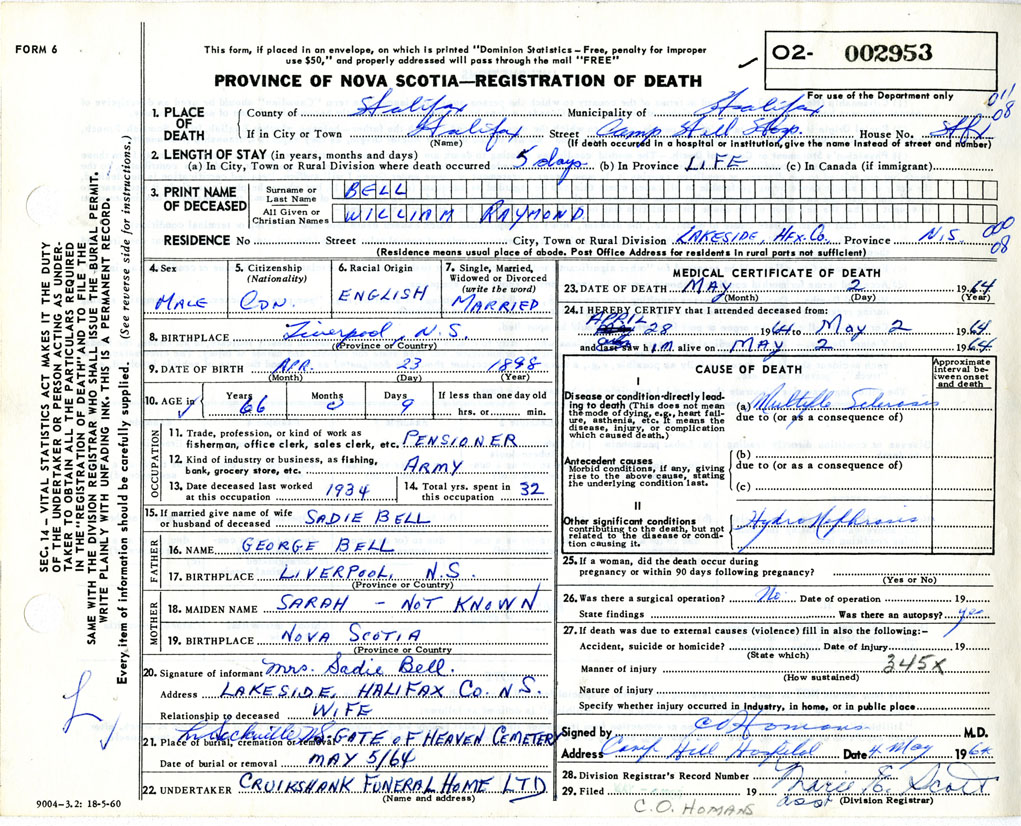 FORM 6
This form, if placed in an envelope, on which is printed "Dominion Statistics – Free, penalty for improper
use $50," and properly addressed will pass through the mail "FREE"
02- 002953
PROVINCE OF NOVA SCOTIA—REGISTRATION OF DEATH
For use of the Department only
011
08
1. PLACE OF DEATH
County of Halifax Municipality of Halifax
If in City or Town Halifax Street Camp Hill Hosp. House No. Hfx
(Name) (If death occurred in a hospital or institution, give the name instead of street and number)
2. LENGTH OF STAY (in years, months and days)
(a) In City, Town or Rural Division where death occurred 5 days (b) In Province LIFE (c) In Canada (if immigrant)
3. PRINT NAME OF DECEASED
Surname or Last Name BELL
All Given or Christian Names WILLIAM RAYMOND
000
08
RESIDENCE No. Street City, Town or Rural Division LAKESIDE, HFX. CO. Province N.S.
(Residence means usual place of abode. Post Office Address for residents in rural parts not sufficient)
4. Sex MALE
5. Citizenship (Nationality) CDN.
6. Racial Origin ENGLISH
7. Single, Married, Widowed or Divorced (write the word) MARRIED
8. BIRTHPLACE Liverpool, N.S.
(Province or Country)
9. DATE OF BIRTH APR. 23 1898
(Month) (Day) (Year)
10. AGE in Years 66 Months 0 Days 9 If less than one day old hrs. or min.
OCCUPATION
11. Trade, profession, or kind of work as
fisherman, office clerk, sales clerk, etc. PENSIONER
12. Kind of industry or business, as fishing,
bank, grocery store, etc. ARMY
13. Date deceased last worked at this occupation 1934
14. Total yrs. spent in this occupation 32
15. If married give name of wife or husband of deceased SADIE BELL
FATHER
16. NAME GEORGE BELL
17. BIRTHPLACE LIVERPOOL, N.S.
(Province or Country)
MOTHER
18. MAIDEN NAME SARAH – NOT KNOWN
19. BIRTHPLACE NOVA SCOTIA
(Province or Country
20. Signature of informant Mrs. Sadie Bell.
Address LAKESIDE, HALIFAX CO. N.S.
Relationship to deceased WIFE
Sackville N.S.
21. Place of burial, cremation or removal GATE OF HEAVEN CEMETERY
Date of burial or removal MAY 5/64
22. UNDERTAKER CRUIKSHANK FUNERAL HOME LTD
(Name and address)
MEDICAL CERTIFICATE OF DEATH
23. DATE OF DEATH MAY 2 1964
(Month) (Day) (Year)
24. I HEREBY CERTIFY that I attended deceased from:
APRIL 28 1964 to May 2 1964
and last saw him alive on MAY 2 1964
CAUSE OF DEATH
Approximate interval between onset and death
I
Disease or condition directly leading to death (This does not mean the mode of dying, e.g., heart failure, asthenia, etc. It means the disease, injury, or complication which caused death.)
(a) Multiple Sclerosis
due to (or as a consequence of)
Antecedent causes
Morbid conditions, if any, giving rise to the above cause, stating the underlying condition last.
(b)
due to (or as a consequence of)
(c)
II
Other significant conditions contributing to the death, but not related to the disease or condition causing it.
Hydronephrosis
25. If a woman, did the death occur during
pregnancy or within 90 days following pregnancy?
(Yes or No)
26. Was there a surgical operation? No. Date of operation 19
State findings Was there an autopsy? yes
27. If death was due to external causes (violence) fill in also the following:–
Accident, suicide or homicide? Date of injury 19
(State which)
345X
Manner of injury
(How sustained)
Nature of injury
Specify whether injury occurred in industry, in home, or in public place
Signed by C O Homans M.D.
Address Camp Hill Hospital Date 4 May 1964
28. Division Registrar's Record Number
29. Filed 19 Marie E. Scott
asst (Division Registrar)
C.O. HOMANS
9004-3.2: 18-5-60
SEC. 14 – VITAL STATISTICS ACT MAKES IT THE DUTY
OF THE UNDERTAKER OR PERSON ACTING AS UNDER-
TAKER TO OBTAIN ALL THE PARTICULARS REQUIRED
IN THE "REGISTRATION OF DEATH" AND TO FILE THE
SAME WITH THE DIVISION REGISTRAR WHO SHALL ISSUE THE BURIAL PERMIT.
WRITE PLAINLY WITH UNFADING INK. THIS IS A PERMANENT RECORD.
Every item of information should be carefully supplied. (See reverse side for instructions.)